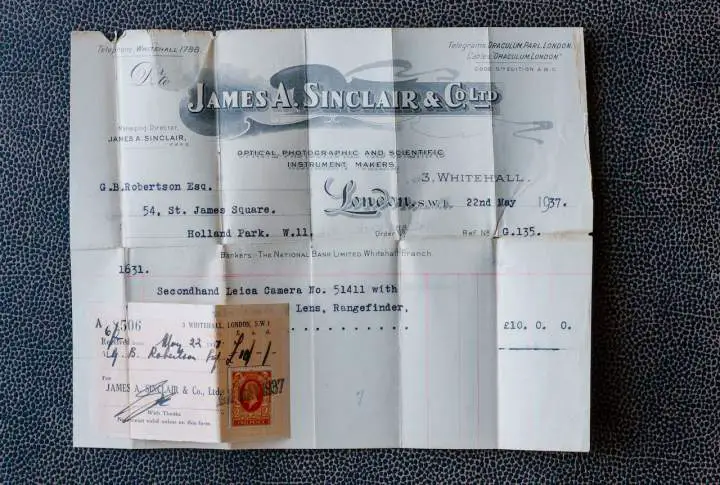 Telegrams, WHITEHALL 1788.
Telegrams, DRACULUM, PARL, LONDON.
Cables, "DRACULUM, LONDON"
CODE 5TH EDITION A.B.C.
Dr to
JAMES A. SINCLAIR & CO. LTD
Managing Director,
JAMES A. SINCLAIR,
OPTICAL, PHOTOGRAPHIC AND SCIENTIFIC
INSTRUMENT MAKERS.
3, WHITEHALL.
G.B.Robertson Esq.
London, S.W.1. 22nd May 1937.
54, St. James Square.
Holland Park. W.11.
Order Ref. No G.135.
Bankers:-THE NATIONAL BANK LIMITED Whitehall Branch
1631.
Secondhand Leica Camera No. 51411 with
Lens, Rangefinder.
£10. 0. 0.
A
3 WHITEHALL, LONDON, S.W.1
Received May 22
G. B. Robertson Esq £10/-/-
For
JAMES A. SINCLAIR & Co., Ltd.
1937
With Thanks
No receipt valid unless on this form.